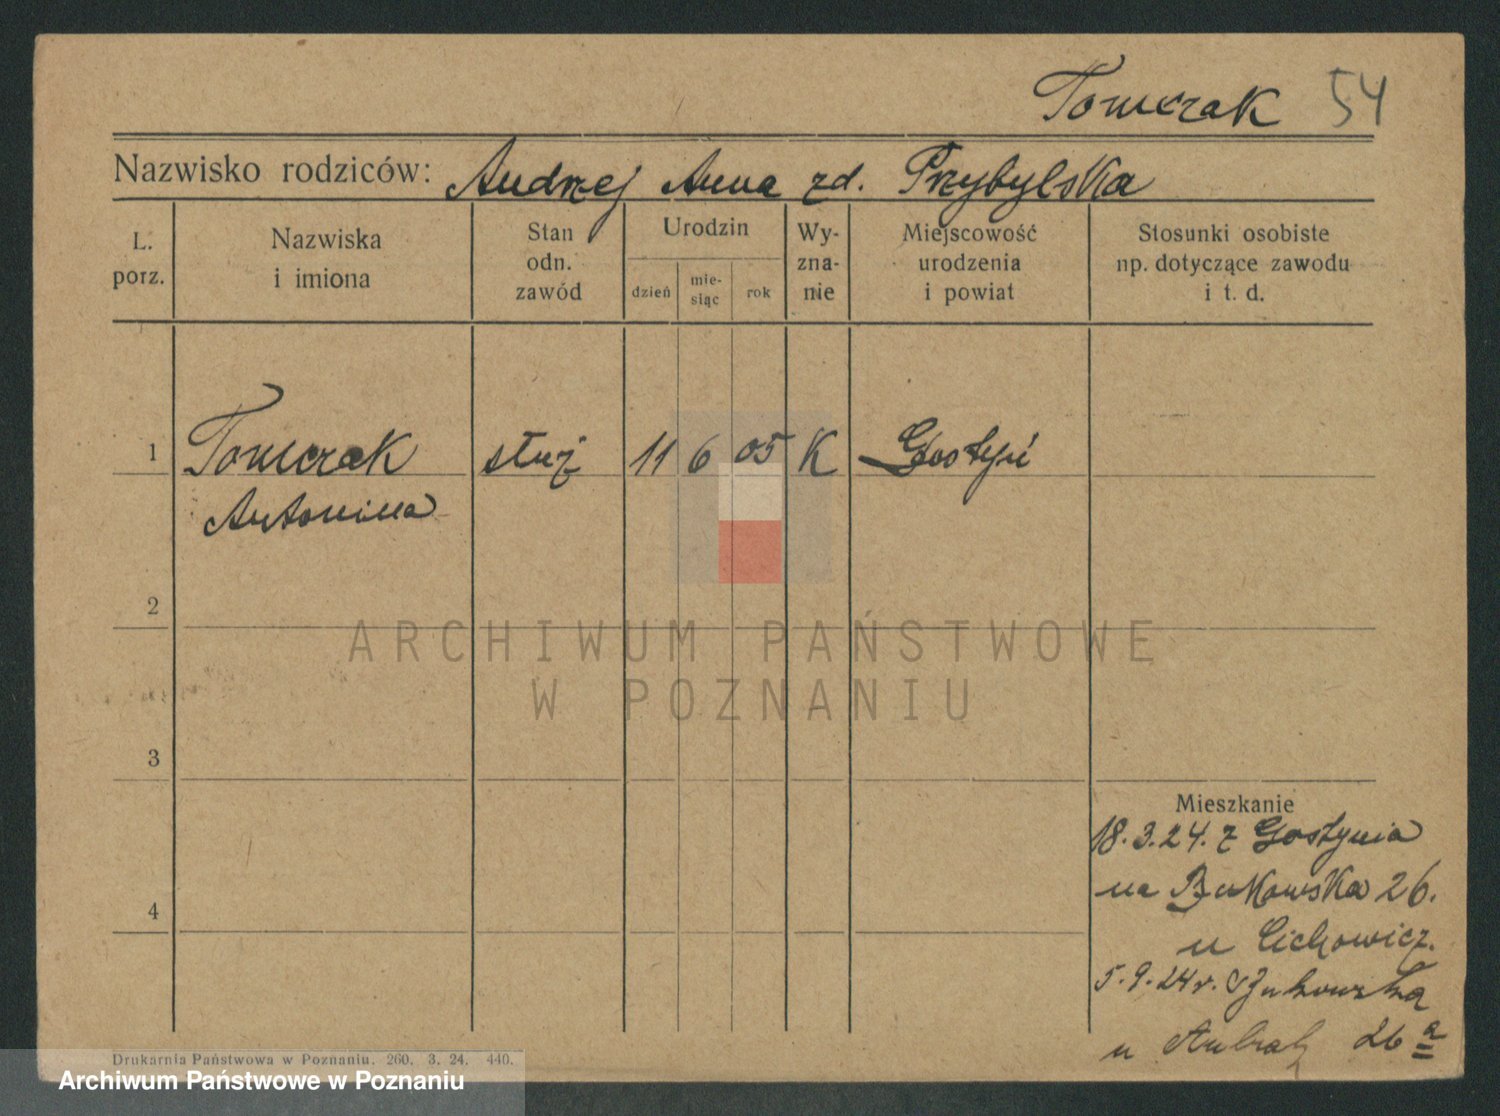 Tomczak 54
Nazwisko rodziców: Andrzej Anna zd. Przybylska
L. porz.
Nazwiska i imiona
Stan odn. zawód
Urodzin
dzień
mie- siąc
rok
Wy- zna- nie
Miejscowość urodzenia i powiat
Stosunki osobiste np. dotyczące zawodu i t. d.
1 Tomczak służ 11 6 05 K Gostyń
Antonina
2
ARCHIWUM PAŃSTWOWE
W POZNANIU
3
Mieszkanie
18.3.24. z Gostynia
na Bukowska 26.
4
u Cichowicz.
5.9.24 r. Bukowska
u 26 a
Drukarnia Państwowa w Poznaniu. 260. 3. 24. 440.
Archiwum Państwowe w Poznaniu